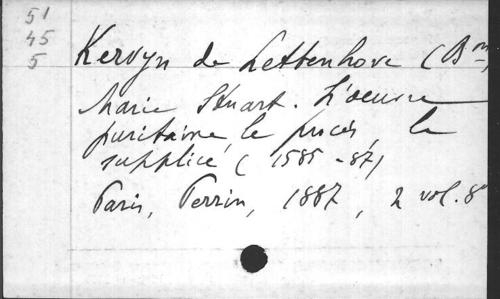 51
45
5
Kervyn de Lettenhove (Bon)
Marie Stuart. L'oeuvre
puritaine le procès, le
supplice (1585-87)
Paris, Perrin, 1887, 2 vol. 8°